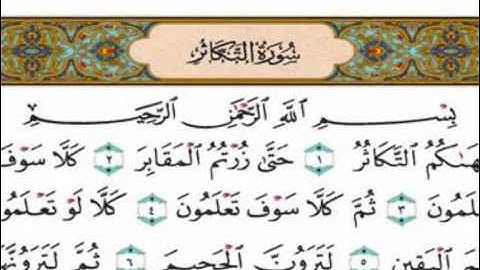 سُورَةُ التَّكَاثُرِ
بِسْمِ اللَّهِ الرَّحْمَٰنِ الرَّحِيمِ
هَىٰكُمُ التَّكَاثُرُ ١ حَتَّىٰ زُرْتُمُ الْمَقَابِرَ ٢ كَلَّا سَوْفَ
لَمُونَ ٣ ثُمَّ كَلَّا سَوْفَ تَعْلَمُونَ ٤ كَلَّا لَوْ تَعْلَمُو
مَ الْيَقِينِ ٥ لَتَرَوُنَّ الْجَحِيمَ ٦ ثُمَّ لَتَرَوُنَّهَا